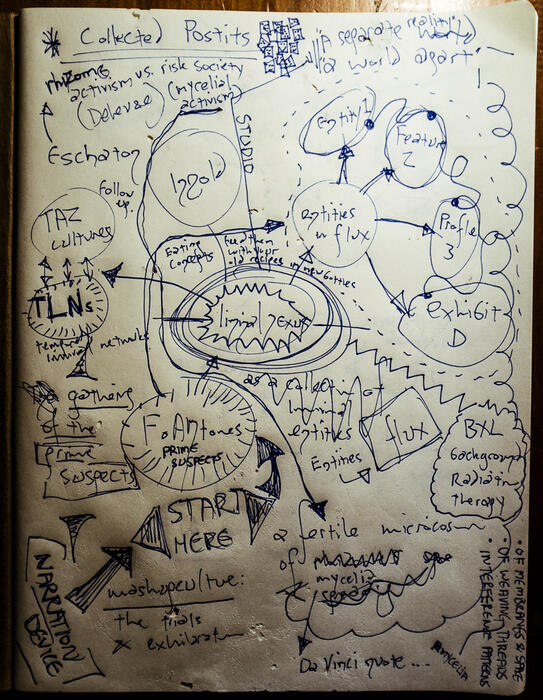 * Collected Postits
"A separate reality"
world
"a world apart"
rhizome
activism vs. risk society
(Deleuze)
(mycelial
activism)
Eschaton
STUDIO
Ingold
Entity 1
Feature
2
Follow
up.
TAZ
cultures
entities
in flux
Profile
3
Eating
concepts
feed them
with your
old recipes in new bottles
exhibit
D
TLNs
liminal nexus
networks
as a collection of
liminal
entities
Entities
flux
a gathering
of the
prime
suspects
FoAMtones
PRIME
SUSPECTS
BXL
background
Radiation
therapy
START
HERE
a fertile microcosm
of
mycelia
NARRATION
DEVICE
mashupculture:
the trials
& exhilaration
Da Vinci quote ...
#mycelia
• OF MEMBRANES & SPACE
• OF WEAVING THREADS
• INTERFERENCE PATTERNS